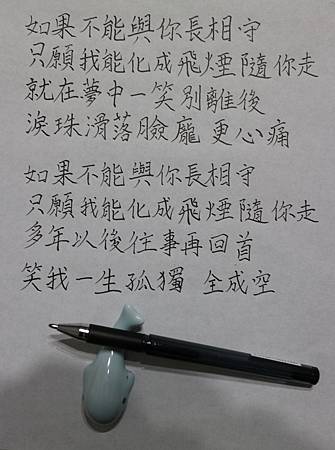 如果不能與你長相守
只願我能化成飛煙隨你走
就在夢中一笑別離後
淚珠滑落臉龐 更心痛
如果不能與你長相守
只願我能化成飛煙隨你走
多年以後往事再回首
笑我一生孤獨 全成空